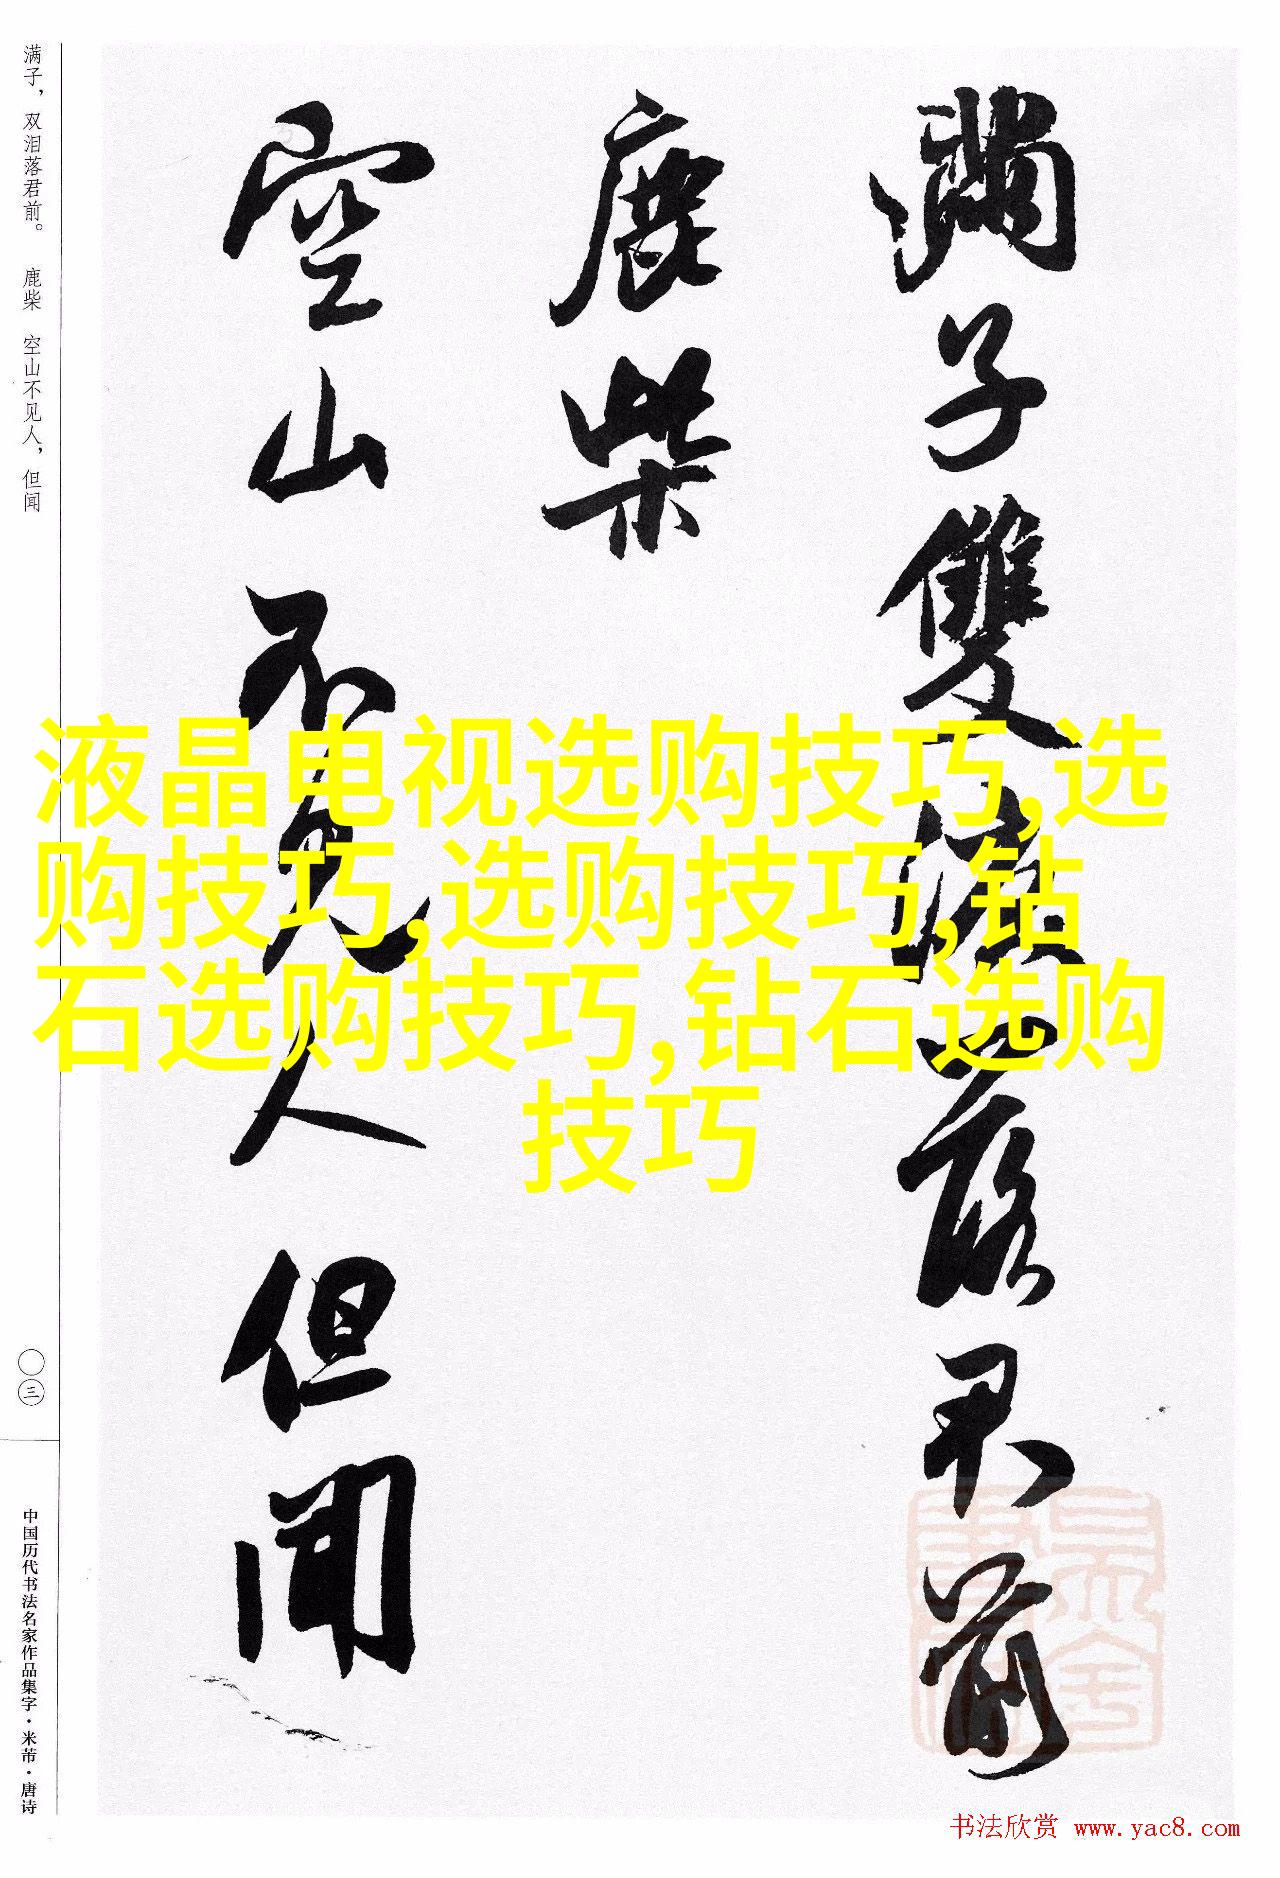 满子，双泪落君前。 鹿柴 空山不见人，但闻
〇三
中国历代书法名家作品集字·米芾·唐诗
满子雙淚落君前
鹿柴
空山不見人但聞
液晶电视选购技巧,选
购技巧,选购技巧,钻
石选购技巧,钻石选购
技巧
书法欣赏 www.yac8.com